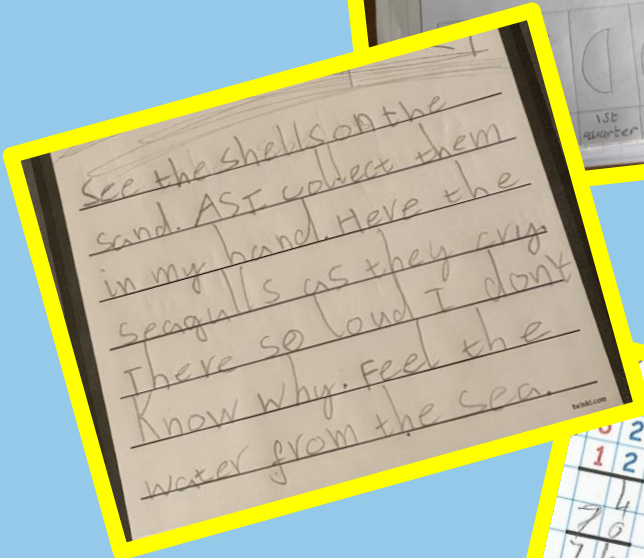 See the shells on the
sand. AS I collect them
in my hand. Here the
seagulls as they cry.
There so loud I dont
Know why. Feel the
water from the sea.
twinkl.com
1st
quarter
6 2
1 2
4
7 0